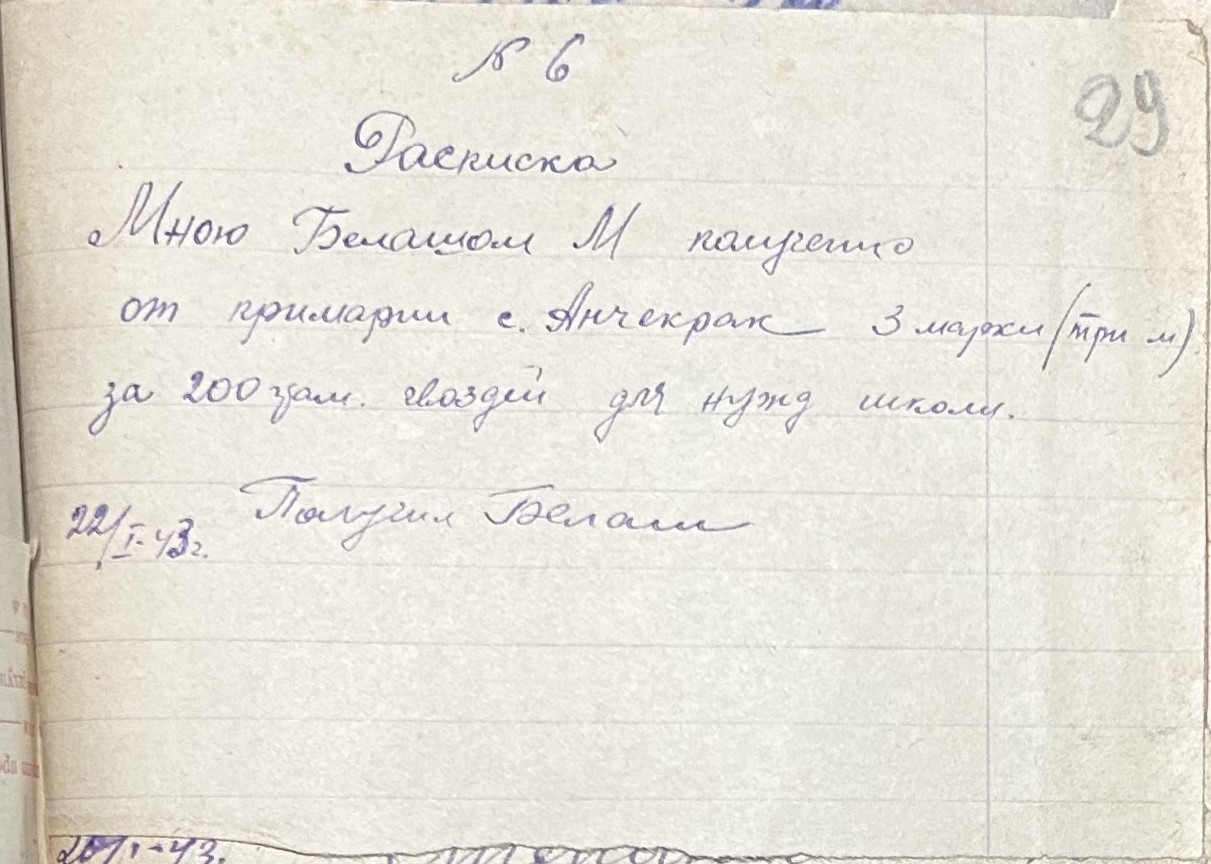 N 6
29
Расписка
Мною Белашом М получено
от примарии с. Анчекрак 3 марки (три м).
за 200 грам. гвоздей для нужд школи.
22/I-43г. Получил Белаш
26/I-43.